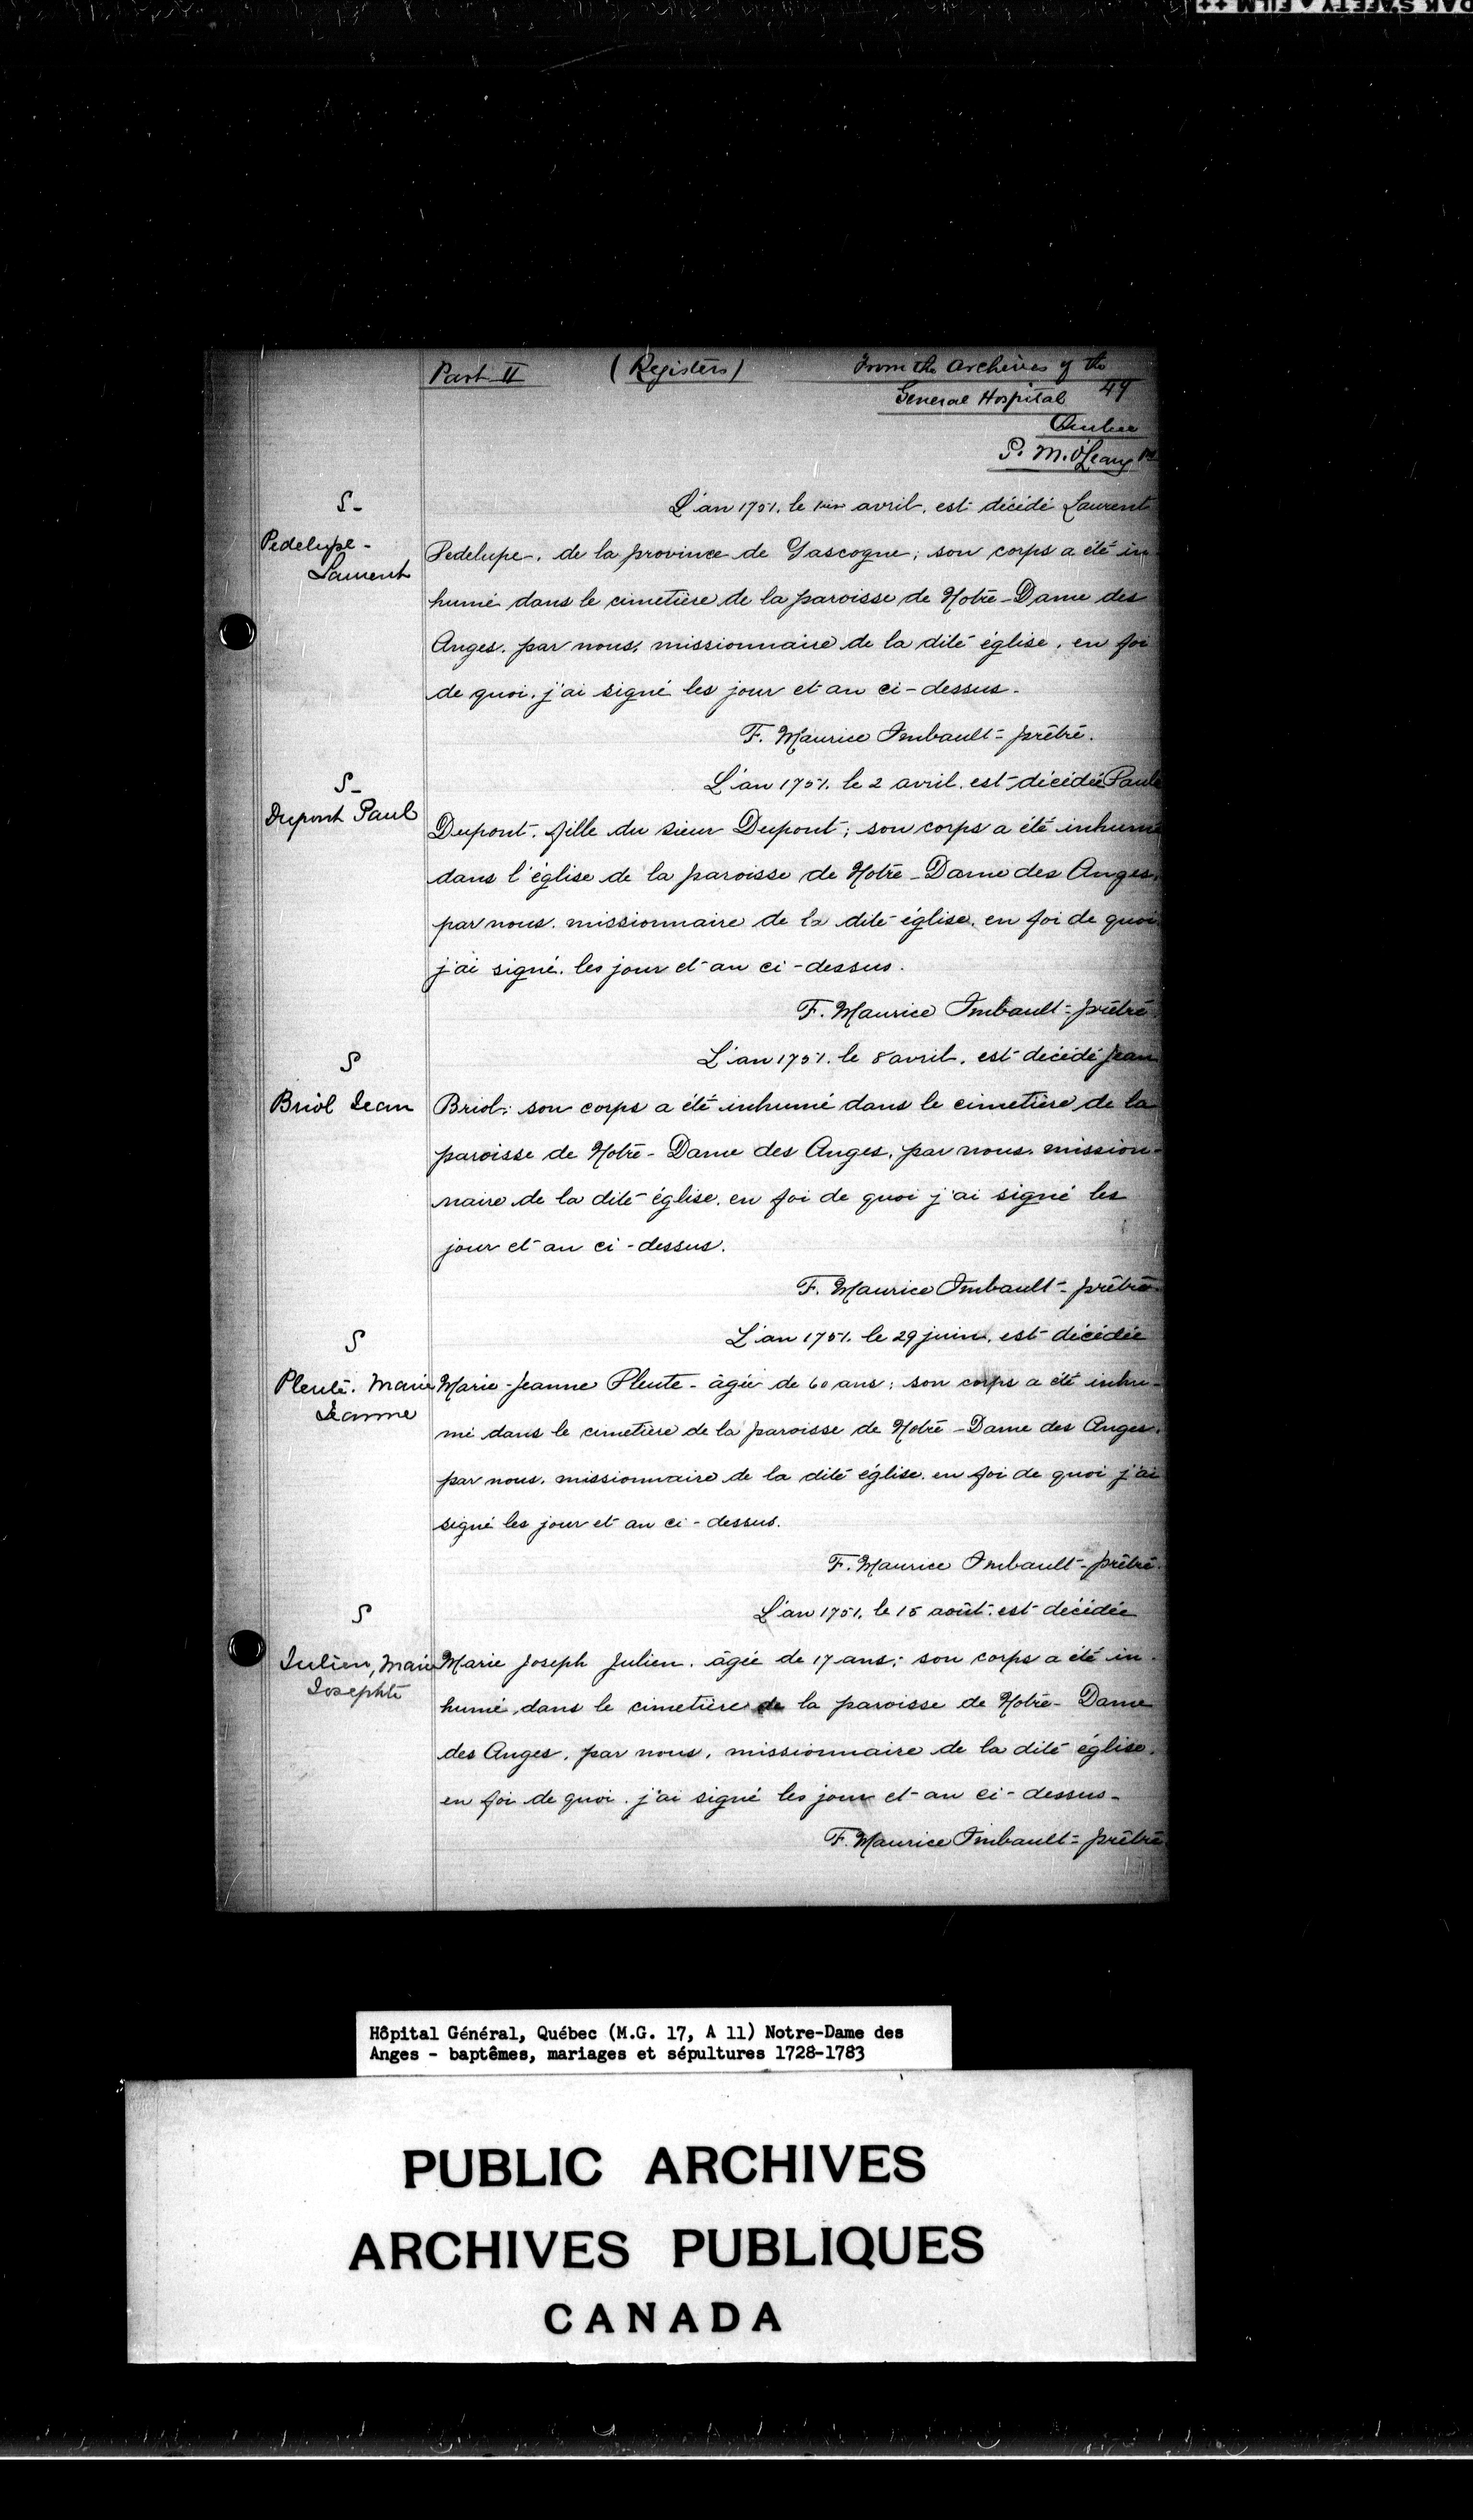 Part II (Registers) From the archives of the
General Hospital 49
Quebec
P. M. O'Leary
S-
L'an 1751. le 1ier avril. est décédé Laurent
Pedelupe-
Laurent
Pedelupe. de la province de Gascogne; son corps a été in-
humé dans le cimetière de la paroisse de Notre-Dame des
Anges. par nous, missionnaire de la dite église. en foi
de quoi. j'ai signé les jour et an ci-dessus.
F. Maurice Imbault - prêtre.
S-
L'an 1751. le 2 avril. est décédée Paule
Dupont Paul
Dupont. fille du sieur Dupont; son corps a été inhumé
dans l'église de la paroisse de Notre-Dame des Anges.
par nous. missionnaire de la dite église. en foi de quoi
j'ai signé. les jour et an ci-dessus.
F. Maurice Imbault - prêtre
S
L'an 1751. le 8 avril. est décédé Jean
Briol Jean
Briol; son corps a été inhumé dans le cimetière de la
paroisse de Notre-Dame des Anges. par nous. mission-
naire de la dite église. en foi de quoi j'ai signé les
jour et an ci-dessus.
F. Maurice Imbault - prêtre
S
L'an 1751. le 29 juin. est décédée
Pleute. Marie
Jeanne
Marie-Jeanne Pleute - âgée de 60 ans; son corps a été inhu-
mé dans le cimetière de la paroisse de Notre-Dame des Anges.
par nous. missionnaire de la dite église. en foi de quoi j'ai
signé les jour et an ci-dessus.
F. Maurice Imbault - prêtre.
S
L'an 1751. le 15 août. est décédée
Julien, Marie
Josephte
Marie Joseph Julien. âgée de 17 ans; son corps a été in-
humé dans le cimetière de la paroisse de Notre-Dame
des Anges. par nous. missionnaire de la dite église.
en foi de quoi. j'ai signé les jour et an ci-dessus-
F. Maurice Imbault - prêtre
Hôpital Général, Québec (M.G. 17, A 11) Notre-Dame des
Anges - baptêmes, mariages et sépultures 1728-1783
PUBLIC ARCHIVES
ARCHIVES PUBLIQUES
CANADA